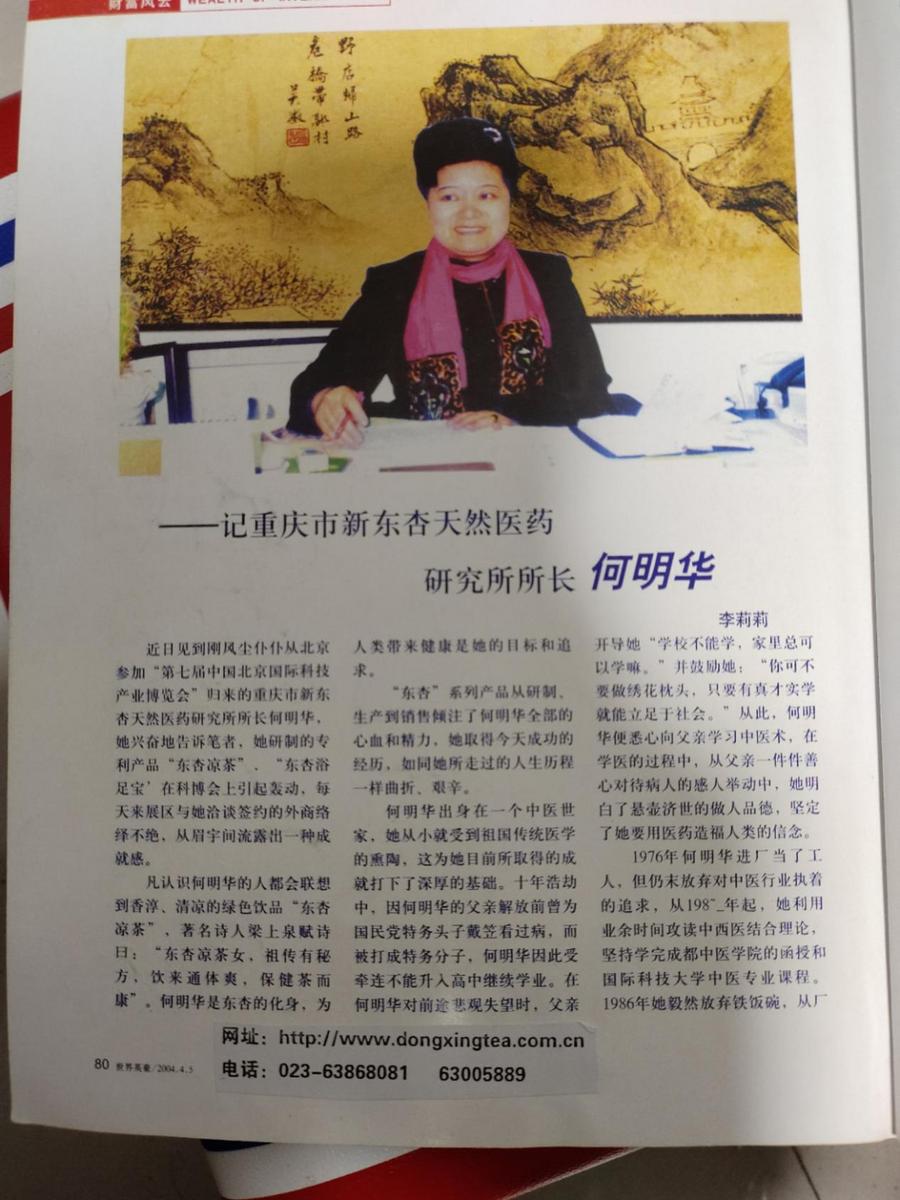 财富风云
WEALTH
野店归山路
危桥带郭村
——记重庆市新东杏天然医药
研究所所长 何明华
李莉莉
近日见到刚风尘仆仆从北京
参加“第七届中国北京国际科技
产业博览会”归来的重庆市新东
杏天然医药研究所所长何明华，
她兴奋地告诉笔者，她研制的专
利产品“东杏凉茶”、“东杏浴
足宝’在科博会上引起轰动，每
天来展区与她洽谈签约的外商络
绎不绝，从眉宇间流露出一种成
就感。
凡认识何明华的人都会联想
到香淳、清凉的绿色饮品“东杏
凉茶”，著名诗人梁上泉赋诗
曰：“东杏凉茶女，祖传有秘
方，饮来通体爽，保健茶而
康”。何明华是东杏的化身，为
人类带来健康是她的目标和追
求。
“东杏”系列产品从研制、
生产到销售倾注了何明华全部的
心血和精力，她取得今天成功的
经历，如同她所走过的人生历程
一样曲折、艰辛。
何明华出身在一个中医世
家，她从小就受到祖国传统医学
的熏陶，这为她目前所取得的成
就打下了深厚的基础。十年浩劫
中，因何明华的父亲解放前曾为
国民党特务头子戴笠看过病，而
被打成特务分子，何明华因此受
牵连不能升入高中继续学业。在
何明华对前途悲观失望时，父亲
开导她“学校不能学，家里总可
以学嘛。”并鼓励她：“你可不
要做绣花枕头，只要有真才实学
就能立足于社会。”从此，何明
华便悉心向父亲学习中医术，在
学医的过程中，从父亲一件件善
心对待病人的感人举动中，她明
白了悬壶济世的做人品德，坚定
了她要用医药造福人类的信念。
1976年何明华进厂当了工
人，但仍未放弃对中医行业执着
的追求，从198 年起，她利用
业余时间攻读中西医结合理论，
坚持学完成都中医学院的函授和
国际科技大学中医专业课程。
1986年她毅然放弃铁饭碗，从厂
网址：http://www.dongxingtea.com.cn
电话：023-63868081 63005889
80 世界英豪/2004.4.5